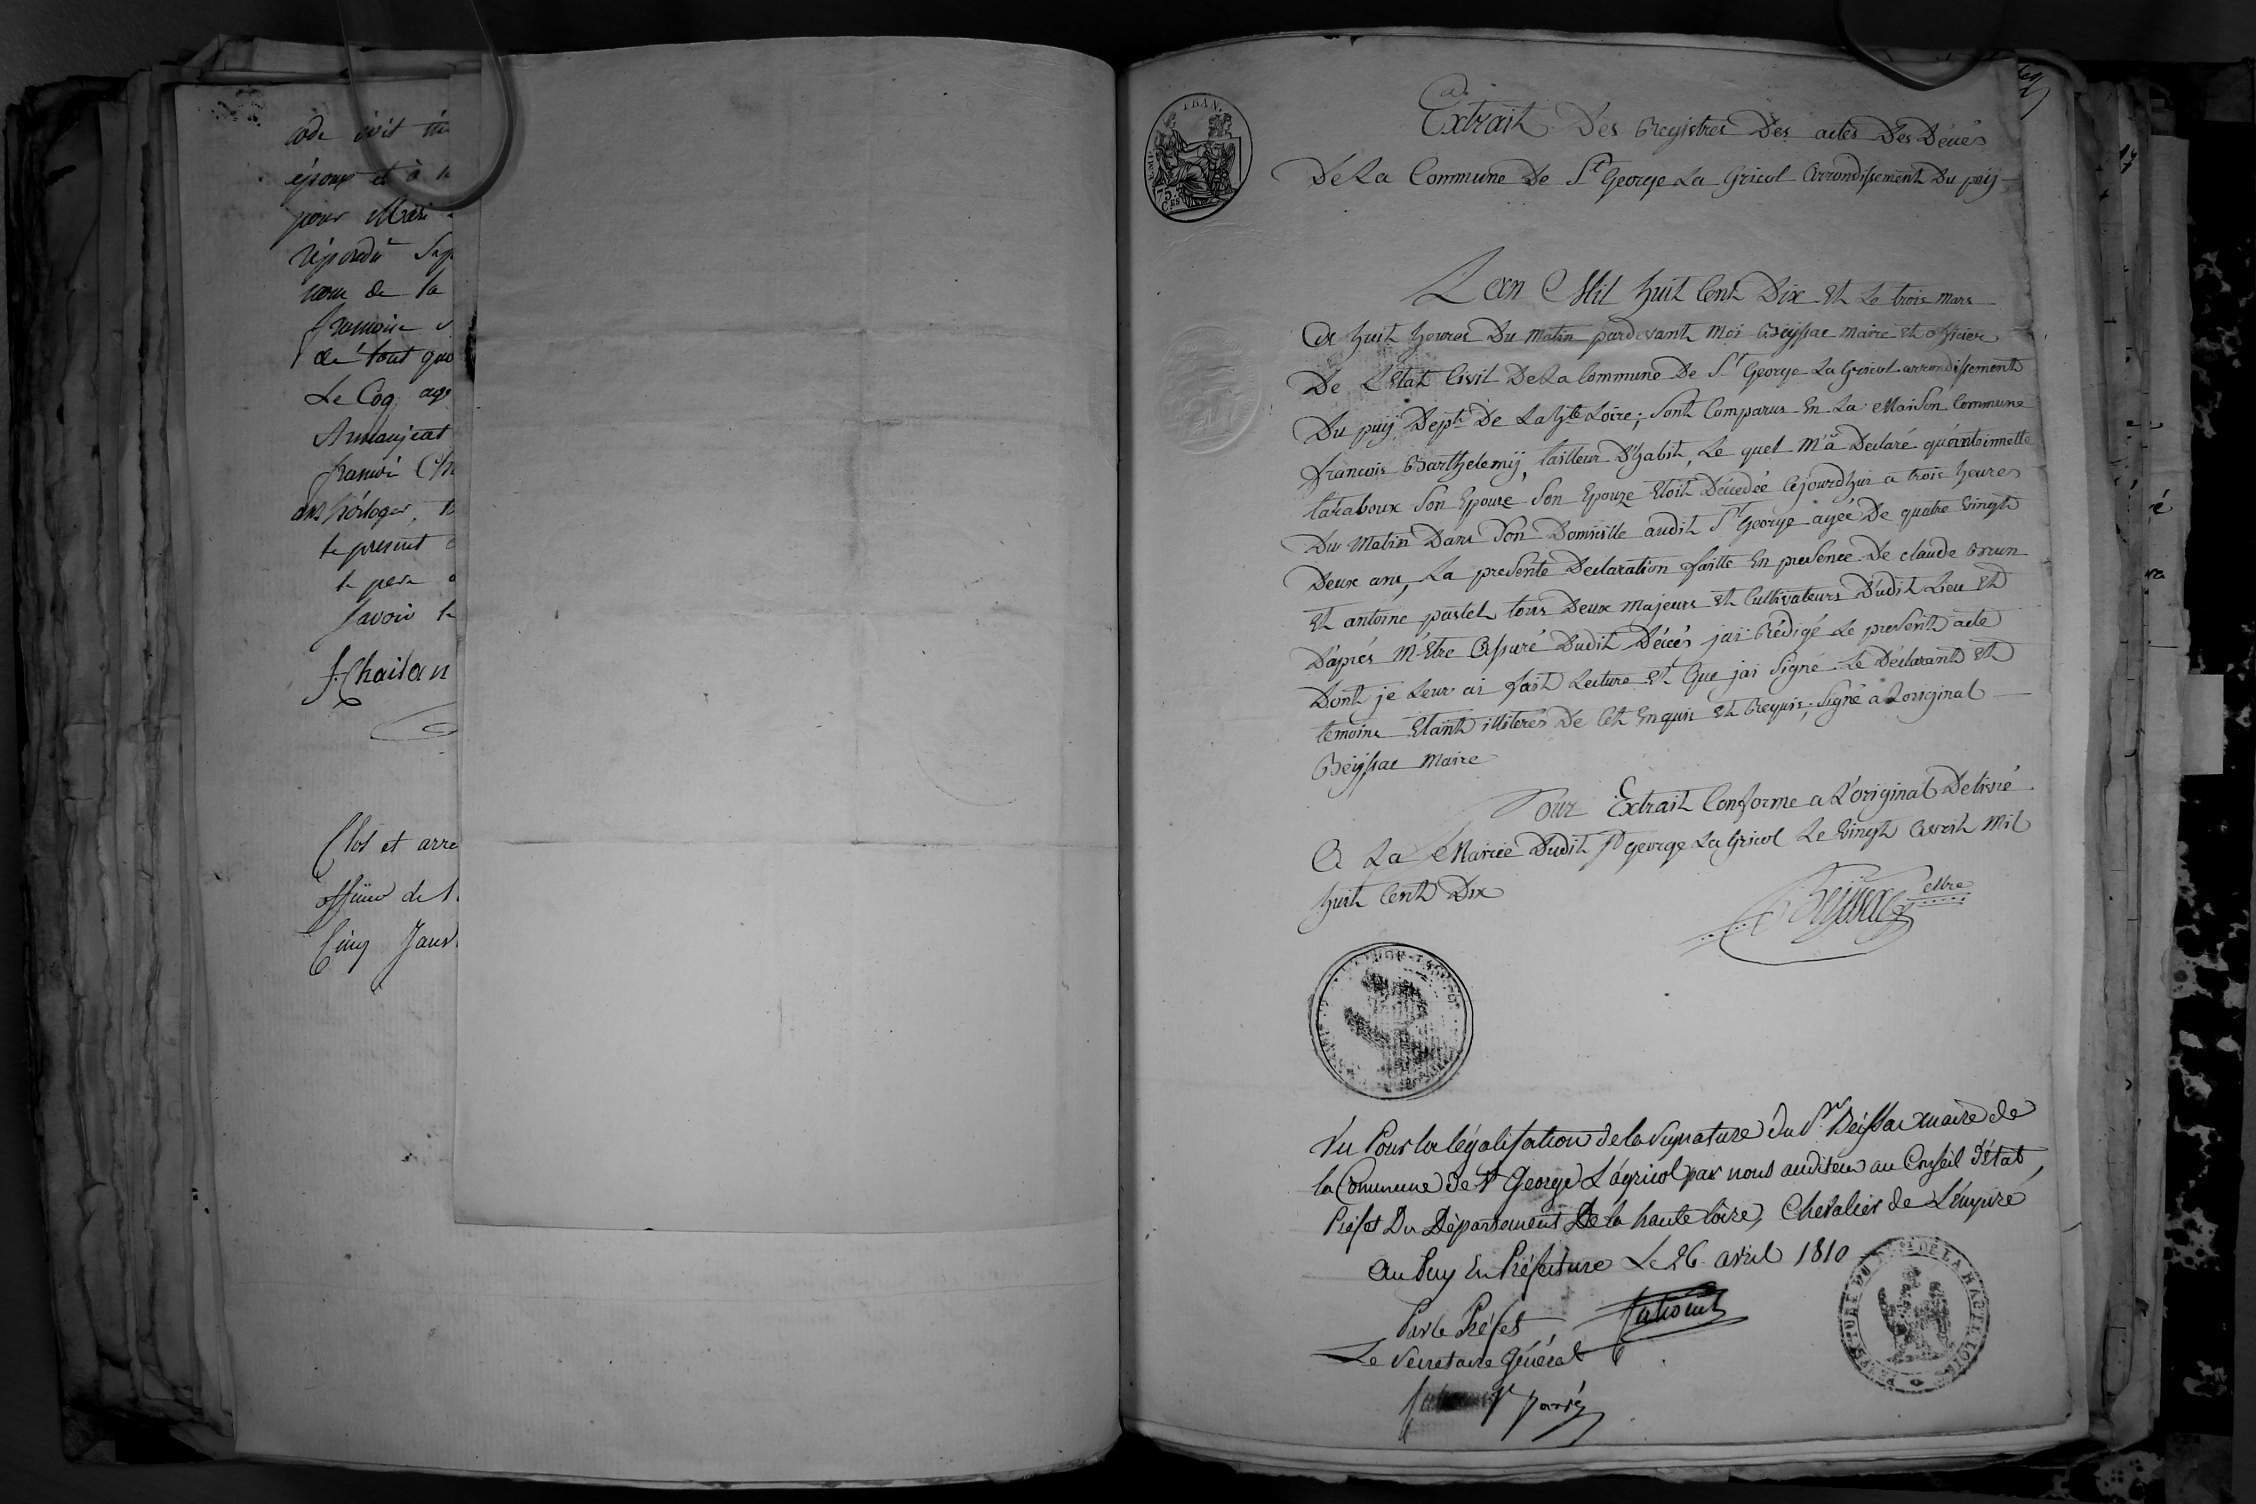 code civil
époux et à
pour Mari
répondu
nom de la
de tout
Le Coq
françois
horloger
le present
le pere
Savoir
J. Chaitan
Clos et arre
officier de l
Cinq Janv
FRAN.
75
CES
Extrait Des Registres Des actes Des Décès
De La Commune De St George La Gricol Arrondissement Du puy
Lan Mil huit Cent Dix Et Le trois mars
A huit heures Du Matin pardevant Moi Beyssac maire et officier
De L'Etat Civil De La Commune De St George La Gricol arrondissement
Du puy Dept De La hte Loire; Sont Comparus En La Maison Commune
francois Barthelemy, tailleur D'habit, Le quel M'a Declaré qu'antoinette
Son Epouze Son Epouze Etoit Décedée Cejourdhui a trois heures
Du Matin Dans Son Domicille audit St George agée De quatre Vingt
Deux ans, La presente Declaration faitte En presence De claude Brun
Et antoine pastel tous Deux Majeurs Et Cultivateurs Dudit Lieu Et
D'aprés M'Etre Assuré Dudit Décès jai Rédigé Le present acte
Dont je Leur ai fait Lecture Et Que jai Signé Le Déclarant Et
temoins Etant illiteres De Cet Enquis Et Requis; Signé a L'original
Beyssac Maire
Pour Extrait Conforme a L'original Delivré
A La Mairie Dudit St George La Gricol Le Vingt Avril Mil
huit Cent Dix
Beyssac
Vu Pour la légalisation de la Signature du Sr. Beissac maire de
la Commune de St George Lagricol par nous auditeur au Conseil d'état,
Préfet Du Département De la haute loire, Chevalier de L'empire
Au Puy En Préfecture Le 26 avril 1810
Par le Préfet
Le Secretaire Général
PREFECTURE DU DEPT DE LA HAUTE LOIRE